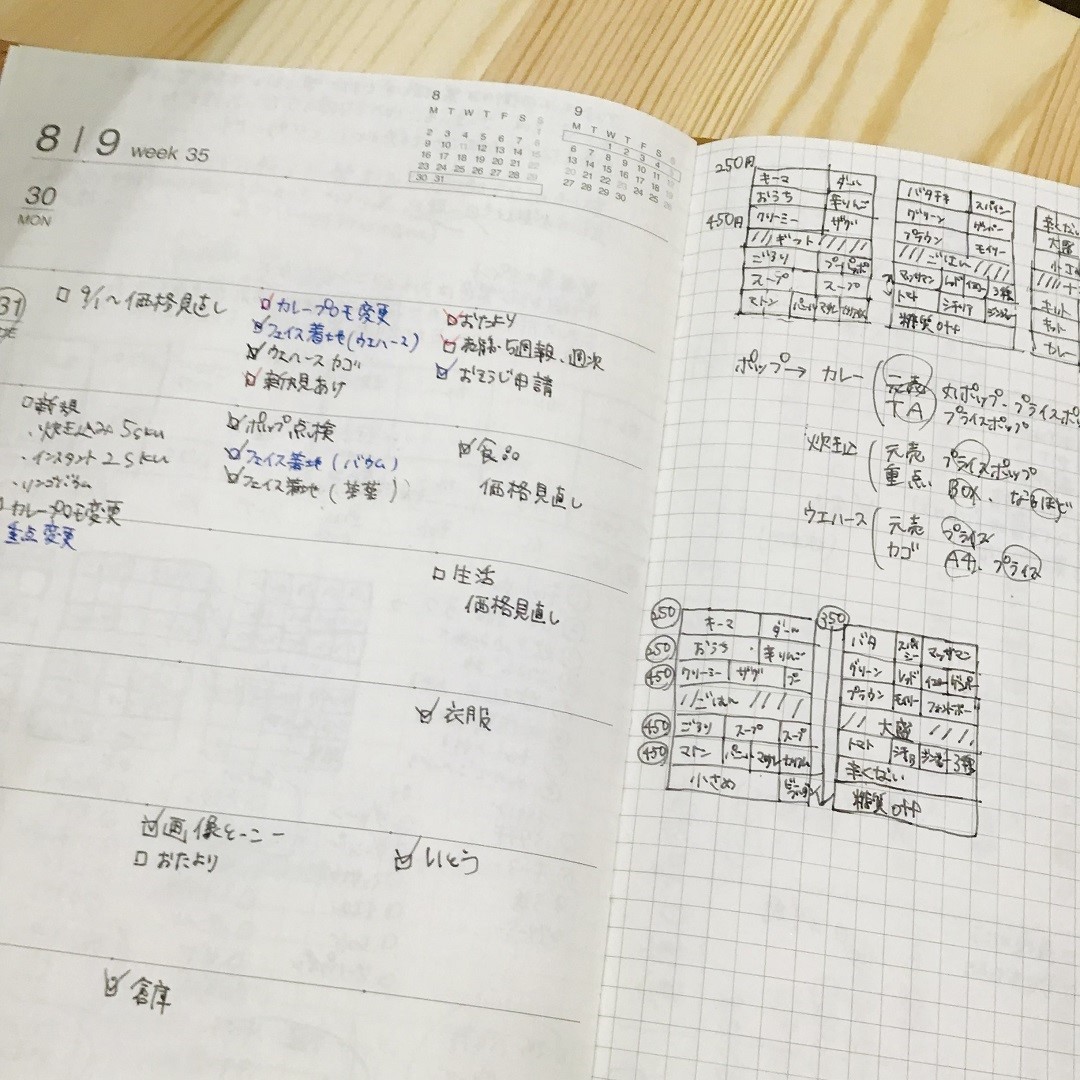 8 | 9 week 35
8
M T W T F S S
1
2 3 4 5 6 7 8
9 10 11 12 13 14 15
16 17 18 19 20 21 22
23 24 25 26 27 28 29
30 31
9
M T W T F S S
1 2 3 4 5
6 7 8 9 10 11 12
13 14 15 16 17 18 19
20 21 22 23 24 25 26
27 28 29 30
30
MON
31
□ 9/1〜価格見直し
カレープロモ変更
フェイス着地(ウエハース)
ウエハースカゴ
新大見あけ
おたより
5週報、週次
おそうじ申請
□新規
・炊き込み 5sku
・インスタント 2sku
・リンゴバウム
カレープロモ変更
重点変更
ポップ点検
フェイス着地(バウム)
フェイス着地
食品
価格見直し
□ 生活
価格見直し
衣服
画像
□ おたより
いとう
倉庫
250円
キーマ ダール
おうち 辛りんご
450円
クリーミー ザグ
ギフト
ごろり
スープ スープ
マトン
バタチキ スパイシー
グリーン
ブラウン モイリー
ごはん
マッサマン レッド イエロー 3種
トマト
糖質off
辛くない
大盛
小さめ
キット
キット
カレー
ポップ→ カレー
元売 丸ポップ、プライスポ
TA プライスポップ
炊込
元売 プライスポップ
重点 BOX、なるほど
ウエハース
元売 プライス
カゴ A4、プライス
250 キーマ ダール
250 おうち 辛りんご
450 クリーミー ザグ プー
ごはん
450 ごろり スープ スープ
450 マトン
小さめ
350
バタ スパイシー マッサマン
グリーン レッド イエロー
ブラウン モイリー
大盛
トマト 3種
辛くない
糖質off